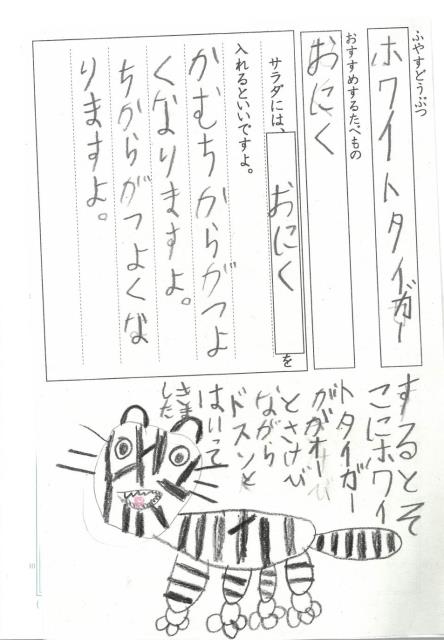 ふやすどうぶつ
ホワイトタイガー
おすすめするたべもの
おにく
サラダには、おにくを
入れるといいですよ。
かむちからがつよ
くなりますよ。
ちからがつよくな
りますよ。
するとそ
こにホワイ
トタイガー
ががオー
とさけび
ながら
ドスンと
はいって
きま
した